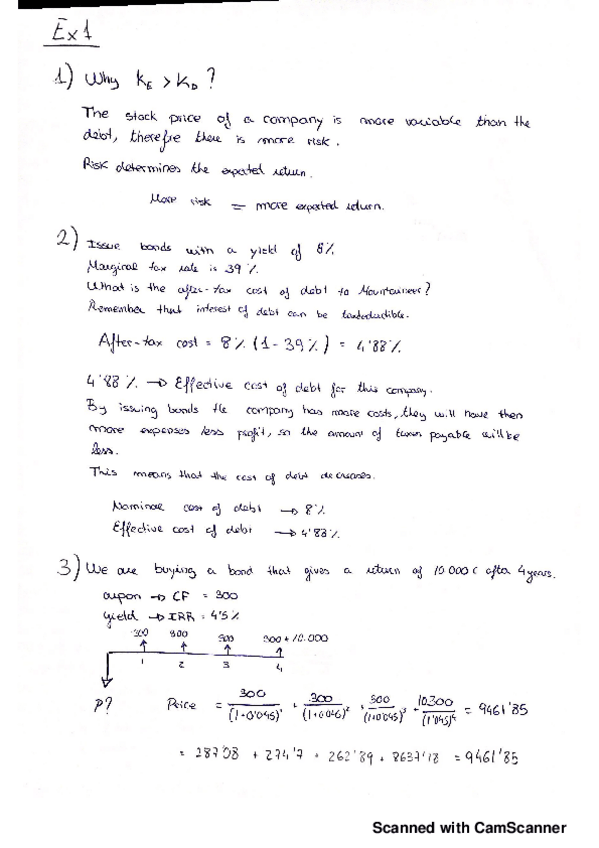 Ex1
1) Why KE > KD ?
The stock price of a company is more variable than the
debt, therefre there is more risk.
Risk determines the expected return.
More risk = more expected return.
2) Issue bonds with a yield of 8%
Marginal tax rate is 39%.
What is the after-tax cost of debt to Mountaineer?
Remember that interest of debt can be taxdeductible.
After-tax cost = 8% (1-39%) = 4'88%
4'88% → Effective cost of debt for this company.
By issuing bonds the company has more costs, they will have then
more expenses less profit, so the amount of taxes payable will be
less.
This means that the cost of debt decreases.
Nominal cost of debt → 8%
Effective cost of debt → 4'88%
3) We are buying a bond that gives a return of 10 000€ after 4 years.
coupon → CF = 300
yield → IRR = 4'5%
300 300 300 300 + 10.000
1 2 3 4
P? Price = 300/(1+0'045)¹ + 300/(1+0'045)² + 300/(1+0'045)³ + 10300/(1'045)⁴ = 9461'85
= 287'08 + 274'7 + 262'89 + 8637'18 = 9461'85
Scanned with CamScanner